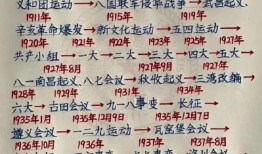 义和团运动→八国联军侵华战争→武昌起义
1911年 1915年 1919年
辛亥革命爆发→新文化运动→五四运动→
1920年 1921年 1922年 1923年 1925年 1927年
共产小组→一大→二大→三大→四大→五大→
1927年8月 1927年8月 1927年9月 1927年9月
八一南昌起义→八七会议→秋收起义→三湾改编→
1928年 1929年 1931年 1934年
六大→古田会议→九一八事变→长征→
1935年1月 1935年12月9日 1935年12月7日
遵义会议→一二九运动→瓦窑堡会议→
1936年10月 1936年12月 1937年7月 1937年8月